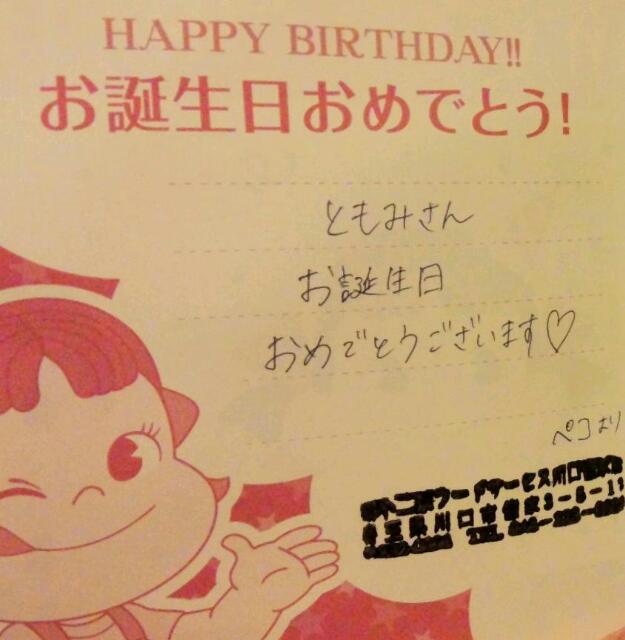 HAPPY BIRTHDAY!!
お誕生日おめでとう!
ともみさん
お誕生日
おめでとうございます♡
ペコより
フードサービス川口
埼玉県川口市 3-5-11
TEL